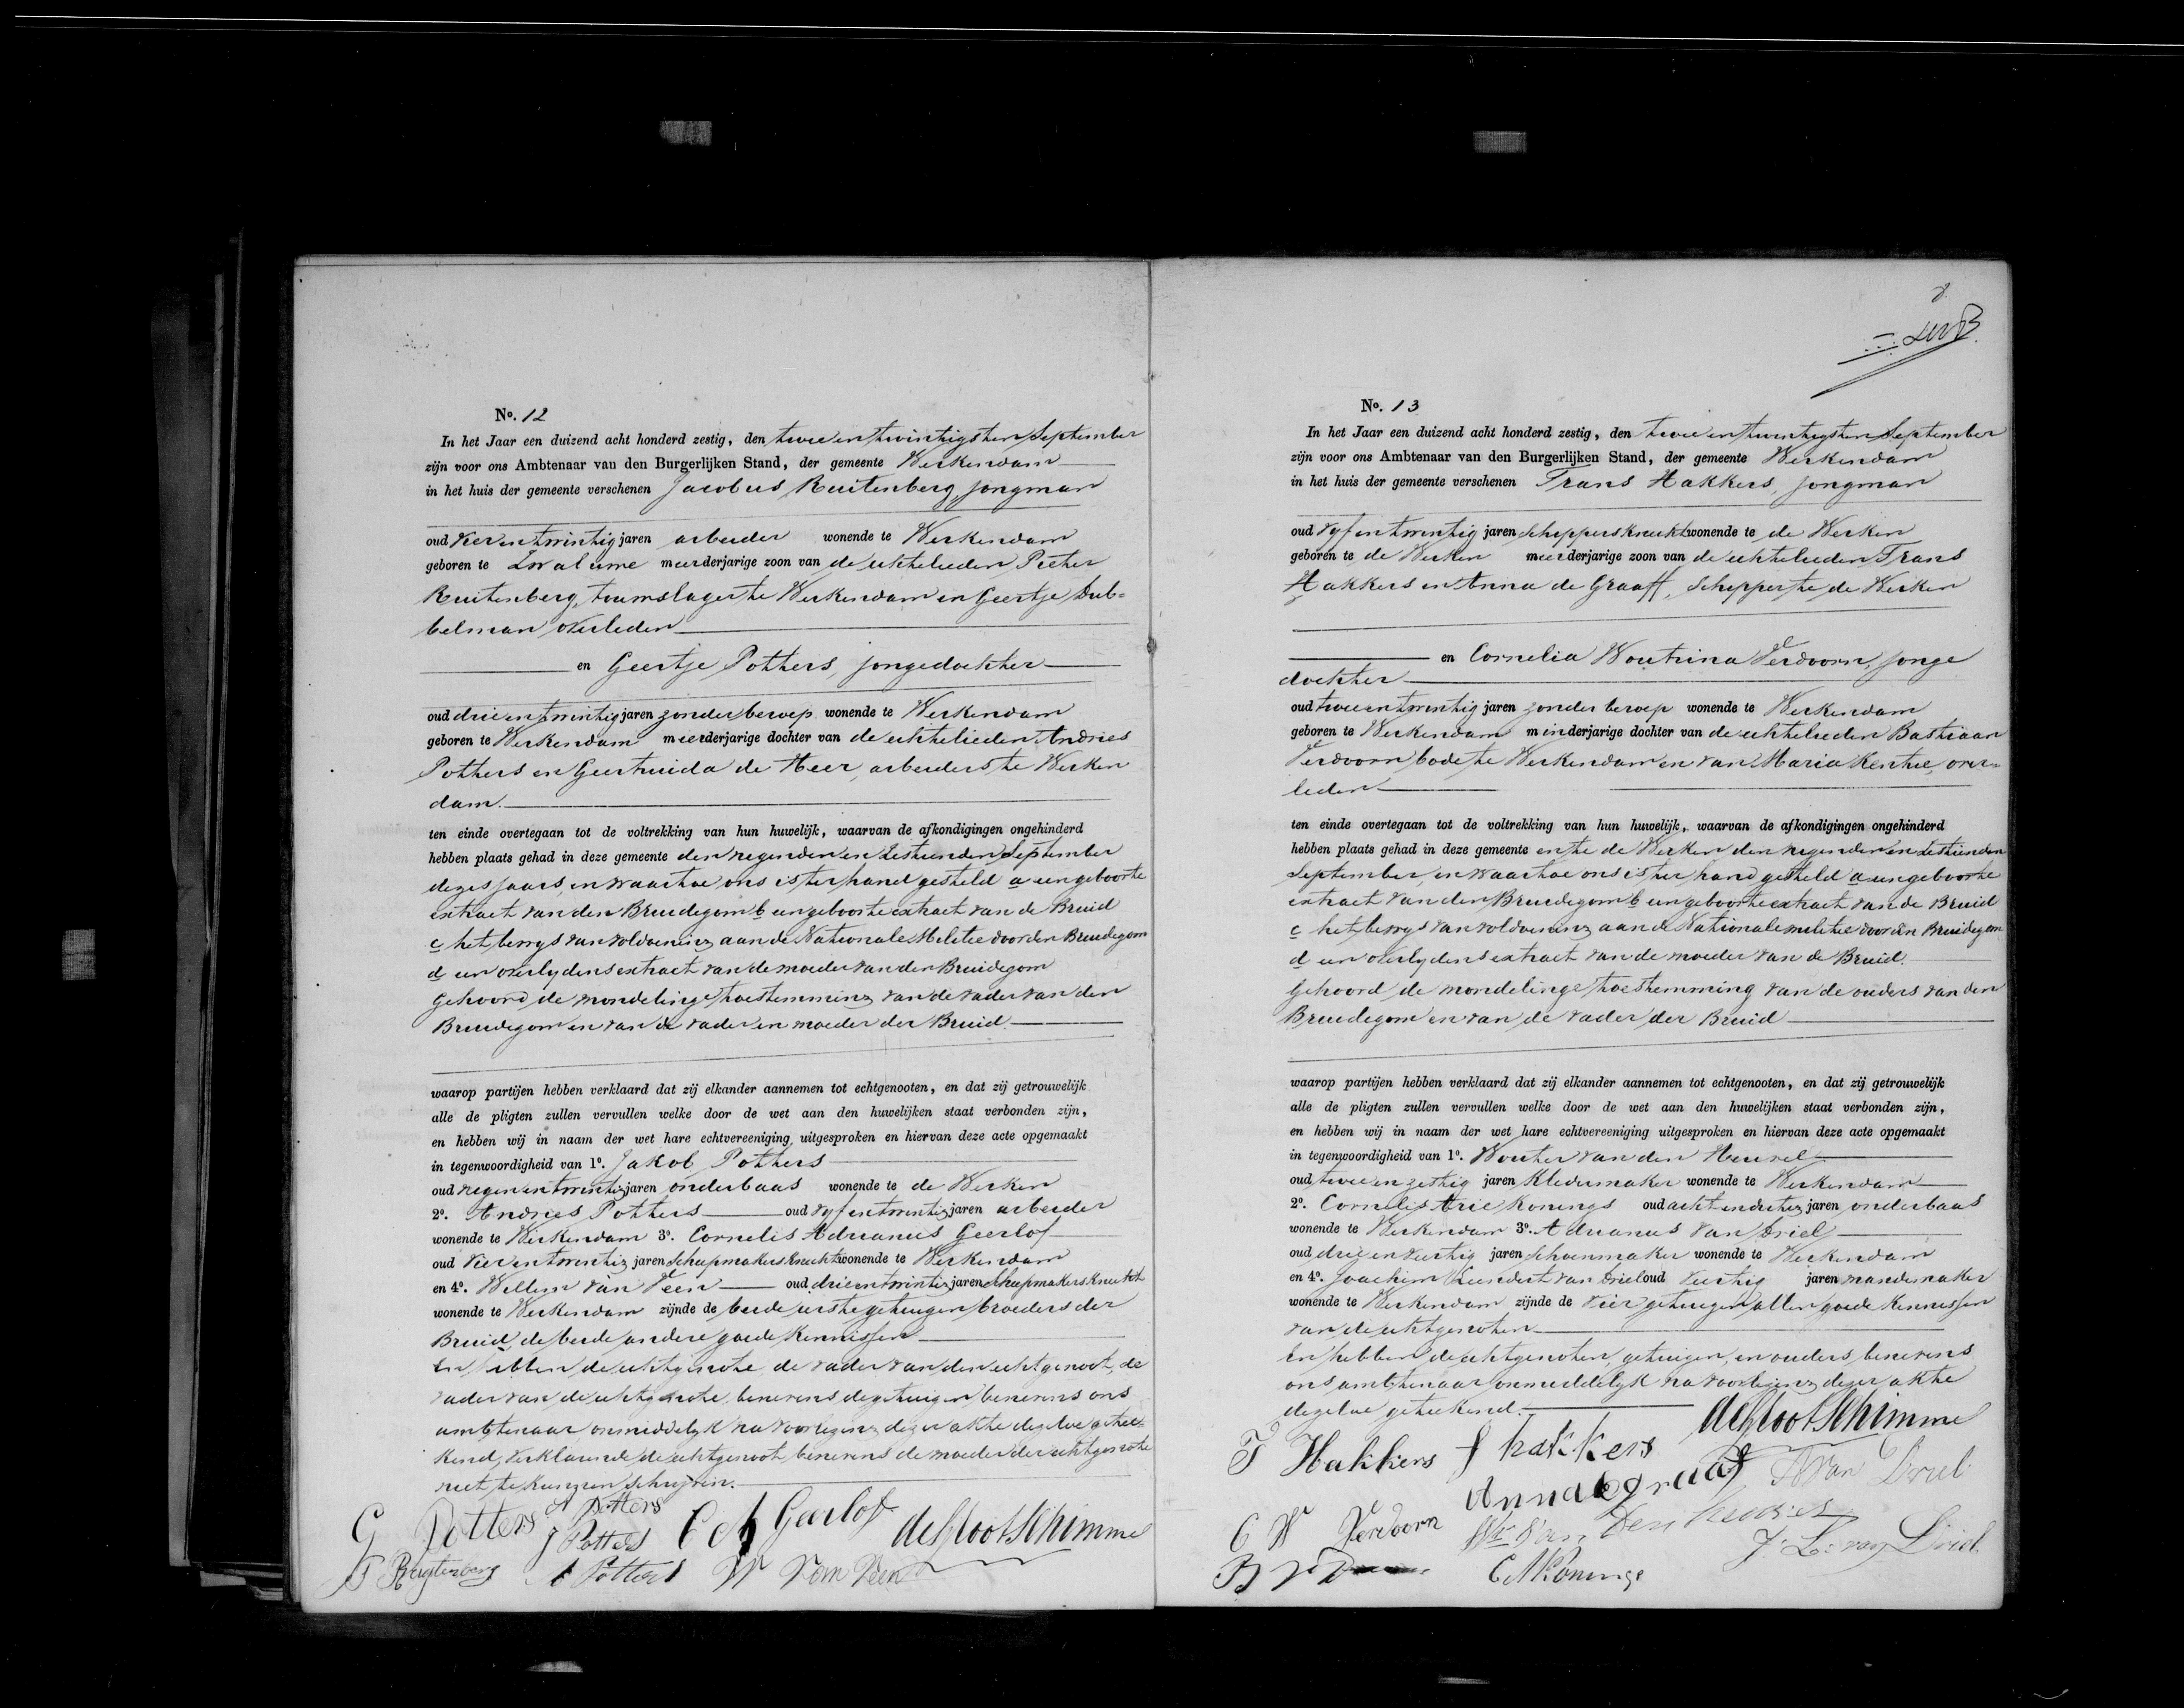 No. 12
In het Jaar een duizend acht honderd zestig, den twee en twintigsten September
zijn voor ons Ambtenaar van den Burgerlijken Stand, der gemeente Werkendam
in het huis der gemeente verschenen Jacobus Ruitenberg, jongman
oud vier en twintig jaren arbeider wonende te Werkendam
geboren te Zwaluwe meerderjarige zoon van de echtelieden Pieter
Ruitenberg, tramslager te Werkendam en Geertje Dub=
belman overleden
en Geertje Potters, jongedochter
oud drie en twintig jaren zonder beroep wonende te Werkendam
geboren te Werkendam meerderjarige dochter van de echtelieden Andries
Potters en Geertruida de Heer, arbeiders te Werken
dam.
ten einde overtegaan tot de voltrekking van hun huwelijk, waarvan de afkondigingen ongehinderd
hebben plaats gehad in deze gemeente den negenden en zestienden September
dezes jaars, en waartoe ons is ter hand gesteld a een geboorte
extract van den Bruidegom b een geboorte extract van de Bruid
c het bewys van voldoening aan de Nationale Militie door den Bruidegom
d een overlydens extract van de moeder van den Bruidegom
Gehoord de mondelinge toestemming van de vader van den
Bruidegom en van de vader en moeder der Bruid.
waarop partijen hebben verklaard dat zij elkander aannemen tot echtgenooten, en dat zij getrouwelijk
alle de pligten zullen vervullen welke door de wet aan den huwelijken staat verbonden zijn,
en hebben wij in naam der wet hare echtvereeniging uitgesproken en hiervan deze acte opgemaakt
in tegenwoordigheid van 1o. Jakob Potters
oud negen en twintig jaren onderbaas wonende te de Werken
2o. Andries Potters oud vyf en twintig jaren arbeider
wonende te Werkendam 3o. Cornelis Adrianus Geerlof
oud vier en twintig jaren scheepmakersknecht wonende te Werkendam
en 4o. Willem van Veen oud drie en twintig jaren scheepmakersknecht
wonende te Werkendam zijnde de beide eerste getuigen broeders der
Bruid, de beide andere goede kennissen
En hebben de echtgenote, de vader van den echtgenoot, de
vader van de echtgenote, benevens de getuigen benevens ons
ambtenaar onmiddelyk na voorlezing dezer akte dezelve getee
kend, verklarende de echtgenoot benevens de moeder der echtgenote
niet te kunnen schryven.
G Potters A Potters
J Potters C A Geerlof de Sloot Schimmel
P Ruytenberg A Potters W van Veen
No. 13
In het Jaar een duizend acht honderd zestig, den twee en twintigsten September
zijn voor ons Ambtenaar van den Burgerlijken Stand, der gemeente Werkendam
in het huis der gemeente verschenen Frans Hakkers, jongman
oud vyf en twintig jaren scheppersknecht wonende te de Werken
geboren te de Werken meerderjarige zoon van de echtelieden Frans
Hakkers en Anna de Graaff, schepper te de Werken
en Cornelia Woutrina Verdoorn, jonge
dochter
oud twee en twintig jaren zonder beroep wonende te Werkendam
geboren te Werkendam minderjarige dochter van de echtelieden Bastiaan
Verdoorn bode te Werkendam en van Maria Kentie, over=
leden
ten einde overtegaan tot de voltrekking van hun huwelijk, waarvan de afkondigingen ongehinderd
hebben plaats gehad in deze gemeente en te de Werken den negenden en zestienden
September, en waartoe ons is ter hand gesteld a een geboorte
extract van den Bruidegom b een geboorte extract van de Bruid
c het bewys van voldoening aan de Nationale militie door den Bruidegom
d een overlydens extract van de moeder van de Bruid.
Gehoord de mondelinge toestemming van de ouders van den
Bruidegom en van de vader der Bruid
waarop partijen hebben verklaard dat zij elkander aannemen tot echtgenooten, en dat zij getrouwelijk
alle de pligten zullen vervullen welke door de wet aan den huwelijken staat verbonden zijn,
en hebben wij in naam der wet hare echtvereeniging uitgesproken en hiervan deze acte opgemaakt
in tegenwoordigheid van 1o. Wouter van den Heuvel
oud twee en zestig jaren kledermaker wonende te Werkendam
2o. Cornelis Arie Konings oud acht en dertig jaren onderbaas
wonende te Werkendam 3o. Adrianus van Driel
oud drie en veertig jaren schoenmaker wonende te Werkendam
en 4o. Joachim Leendert van Driel oud veertig jaren mandemaker
wonende te Werkendam zijnde de vier getuigen allen goede kennissen
van de echtgenoten
En hebben de echtgenoten, getuigen, en ouders benevens
ons ambtenaar onmiddelyk na voorlezing dezer akte
dezelve geteekend. de Sloot Schimmel
F Hakkers f hakkers
Anna de graaf A van Driel
C W Verdoorn Wr van Den heuvel
J. L. van Driel
C A Konings